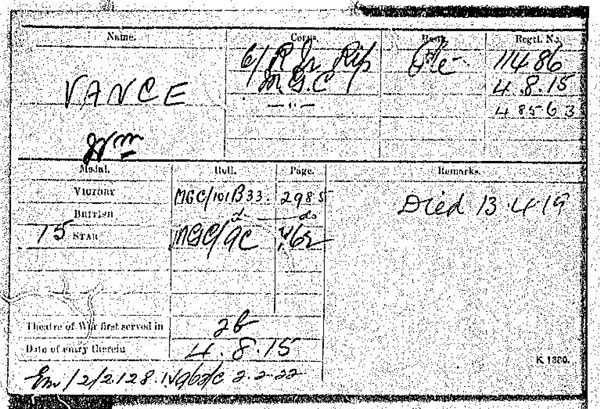 Name. Corps. Rank. Regtl. No.
VANCE 6/R Ir Rif Pte 11486
M.G.C 4.8.15
—"— 48563
Wm
Medal. Roll. Page. Remarks.
VICTORY MGC/101B33. 2985 Died 13.4.19
BRITISH do do
15 STAR MGC/9C
Theatre of War first served in 2b
Date of entry therein 4.8.15
K 1380.
2.2.22